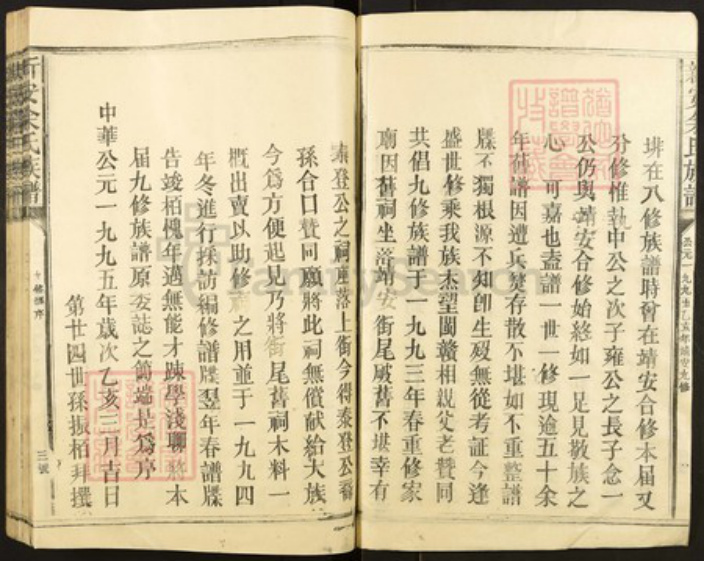 新安余氏族譜
公元一九九五乙亥年靖安九修
埂在八修族譜時會在靖安合修本届又
分修惟執中公之次子雍公之長子念一
公仍與靖安合修始終如一足見敬族之
心可嘉也蓋譜一世一修現逾五十余
年舊譜因遭兵焚存散不堪如不重整譜
牒不獨根源不知卽生殁無從考証今逢
盛世修乘我族杰望閩贛相親父老贊同
共倡九修族譜于一九九三年春重修家
廟因舊祠坐落靖安街尾廢舊不堪幸有
泰登公之祠座落上街今得泰登公裔
孫合口贊同願將此祠無償献給大族
今爲方便起見乃將街尾舊祠木料一
概出賣以助修之用並于一九九四
年冬進行採訪編修譜牒翌年春譜牒
告竣栢愧年邁無能才踈學淺聊將本
届九修族譜原委誌之簡端是爲序
中華公元一九九五年歲次乙亥三月吉日
第廿四世孫振栢拜撰
新安余氏族譜
序
三號
FamilySearch